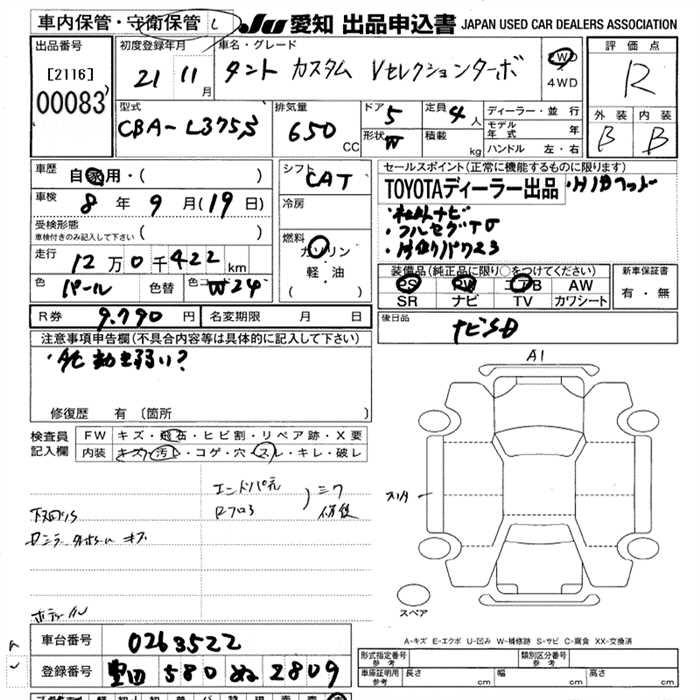 車内保管・守衛保管 し
JU 愛知 出品申込書 JAPAN USED CAR DEALERS ASSOCIATION
出品番号
[2116]
00083
初度登録年月
21 11月
車名・グレード
タント カスタム Vセレクションターボ
2WD
4WD
評価点
R
外装 内装
B B
型式
CBA-L375S
排気量
650 CC
ドア 5
形状 W
定員 4人
積載 kg
ディーラー・並行
モデル年式 年
ハンドル 左・右
車歴
自家用・( )
車検
8年9月(19日)
受検形態
車検付きのみ記入して下さい ( )
走行
12万0千422km
色 パール 色替 色コード W24
シフト
CAT
冷房
燃料
ガソリン
・軽・油
( )
セールスポイント(正常に機能するものに限ります)
TOYOTAディーラー出品
・社外ナビ
・フルセグTV
装備品(純正品に限り○をつけてください)
PS PW エアB AW
SR ナビ TV カワシート
新車保証書
有・無
R券 9.790円 名変期限 月 日
後日品
ナビSD
注意事項申告欄(不具合内容等は具体的に記入して下さい)
修復歴 有 (箇所 )
検査員
記入欄
FW キズ・飛石・ヒビ割・リペア跡・X要
内装 キズ・汚レ・コゲ・穴・スレ・キレ・破レ
エンドパネ
A1
スペア
A-キズ E-エクボ U-凹み W-補修跡 S-サビ C-腐食 XX-交換済
車台番号 0263522
登録番号 豊田 580 ぬ 2809
形式指定番号 参考
類別区分番号 参考
車庫証明用 参考 長さ cm 幅 cm 高さ cm